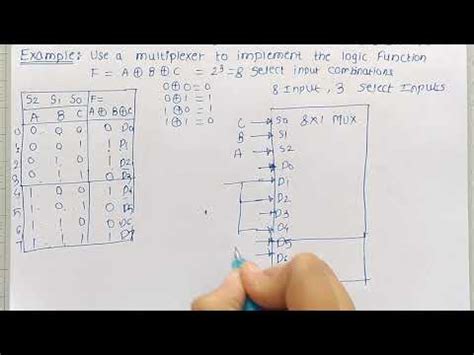 Example: Use a multiplexer to implement the logic Function
F = A ⊕ B ⊕ C = 2³ = 8 select input combinations
0⊕0=0
0⊕1=1
1⊕0=1
1⊕1=0
8 Input, 3 Select Inputs
S2 S1 S0 F=
A B C A⊕B⊕C
0 0 0 0 0 D0
1 0 0 1 1 D1
2 0 1 0 1 D2
3 0 1 1 0 D3
4 1 0 0 1
5 1 0 1 0 D5
6 1 1 0 0 D6
7 1 1 1 1 D7
C S0 8X1 MUX
B S1
A S2
D0
D1
D2
D3
D4
D5
D6